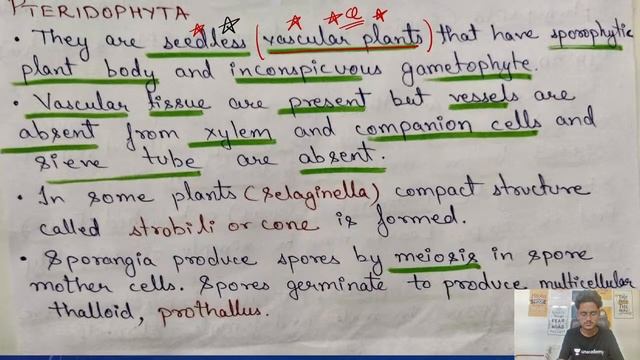 PTERIDOPHYTA
• They are seedless (vascular plants) that have sporophytic
plant body and inconspicuous gametophyte.
• Vascular tissue are present but vessels are
absent from xylem and companion cells and
sieve tube are absent.
• In some plants (Selaginella) compact structure
called strobili or cone is formed.
• Sporangia produce spores by meiosis in spore
mother cells. Spores germinate to produce multicellular
thalloid, prothallus.
unacademy